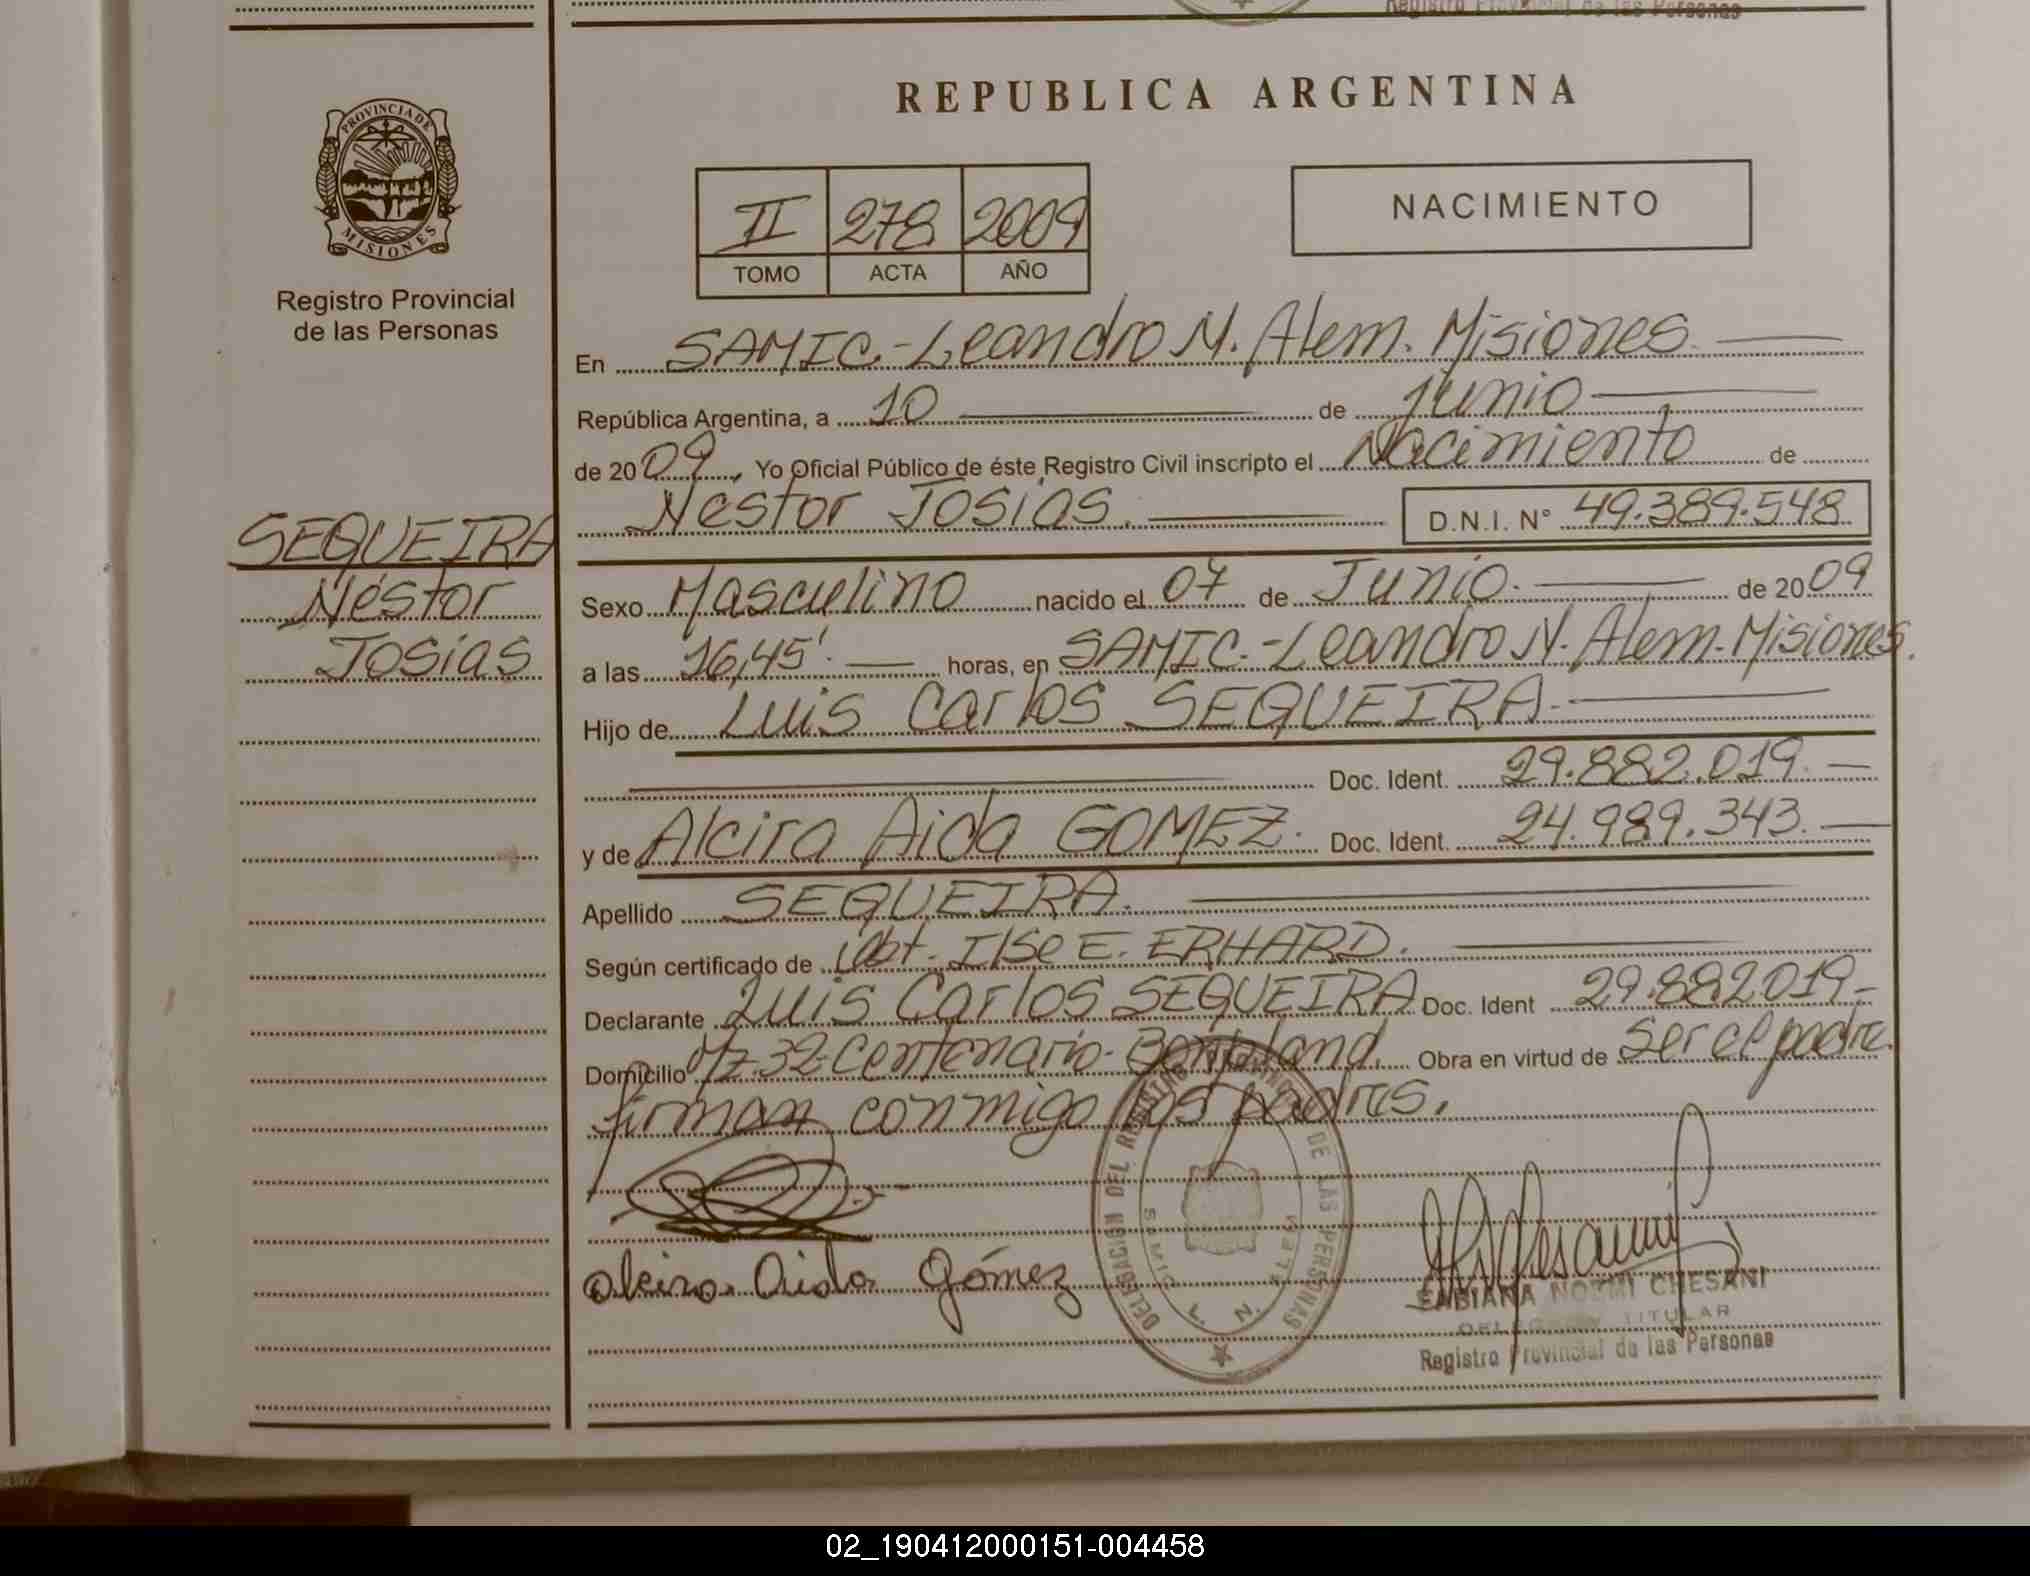 Registro Provincial de las Personas
PROVINCIA DE
MISIONES
Registro Provincial
de las Personas
SEQUEIRA
Néstor
Josías
REPUBLICA ARGENTINA
II 278 2009
TOMO ACTA AÑO
NACIMIENTO
En SAMIC.-Leandro N. Alem. Misiones.
República Argentina, a 10 de junio
de 2009, Yo Oficial Público de éste Registro Civil inscripto el Nacimiento de
Néstor Josías. D.N.I. N° 49.389.548
Sexo Masculino nacido el 07 de Junio. de 2009
a las 16,45'. horas, en SAMIC.-Leandro N. Alem.-Misiones.
Hijo de Luis Carlos SEQUEIRA.
Doc. Ident. 29.882.019.
y de Alcira Aida GOMEZ. Doc. Ident. 24.989.343.
Apellido SEQUEIRA.
Según certificado de Obt. Ilse E. ERHARD.
Declarante Luis Carlos SEQUEIRA Doc. Ident 29.882019-
Domicilio Mz.32-Centenario-Bonpland. Obra en virtud de ser el padre.
firman conmigo los padres.
Alcira Aida Gómez
DELEGACION DEL REGISTRO PROVINCIAL DE LAS PERSONAS
SAMIC
L. N. ALEM
FABIANA NOEMI CHESANI
DELEGADA TITULAR
Registro Provincial de las Personas
02_190412000151-004458